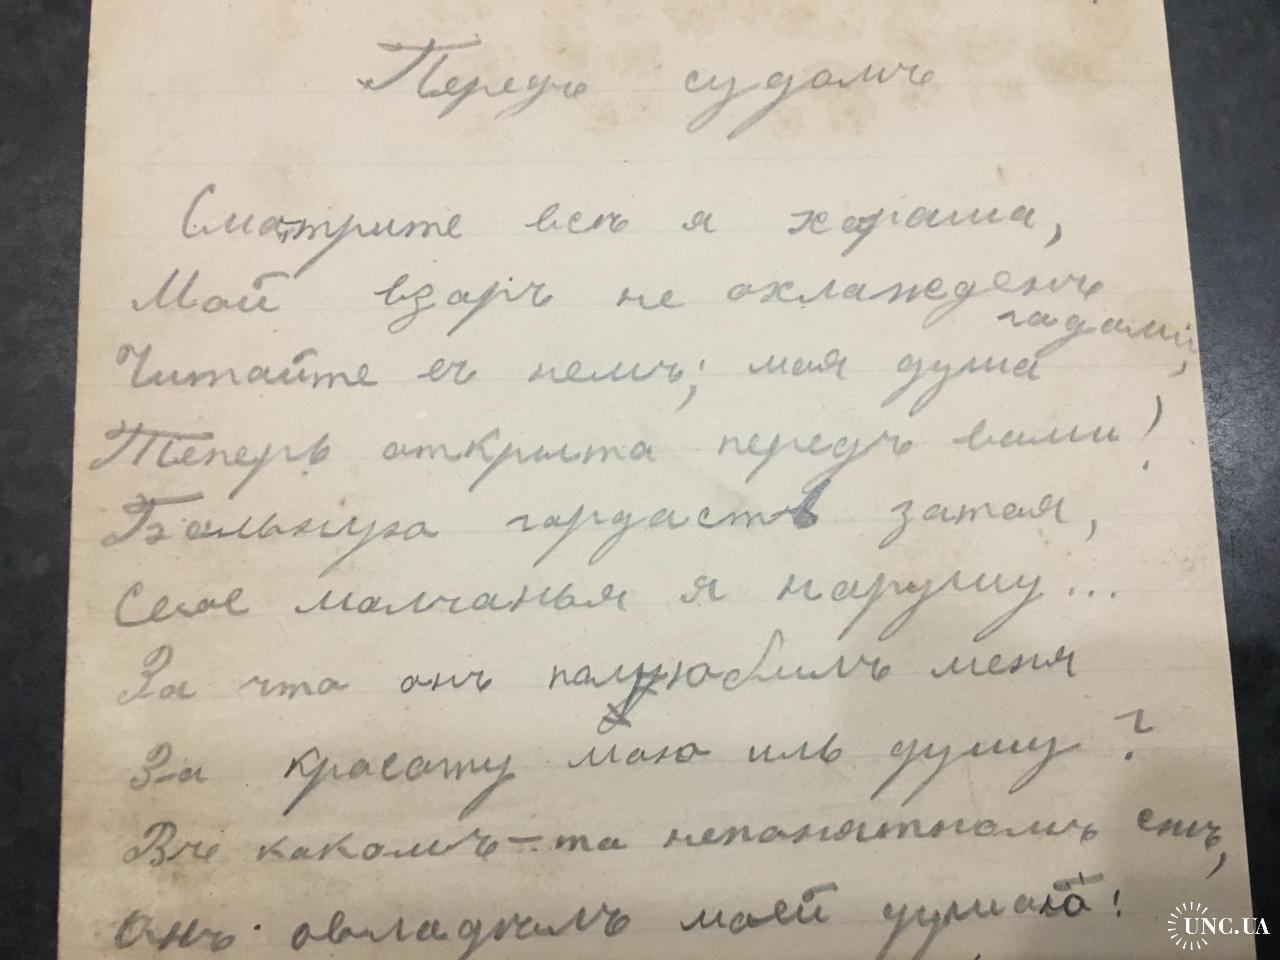 Передъ судомъ
Смотрите всѣ я хороша,
Мой взоръ не охлажденъ
годами,
Читайте въ немъ; моя душа
Теперь открыта передъ вами!
Больную гордость затая,
Свое молчанья я нарушу...
За что онъ полюбилъ меня
За красоту мою иль душу?
Въ какомъ-то непонятномъ снѣ,
Онъ овладѣлъ моей душою!
UNC.UA